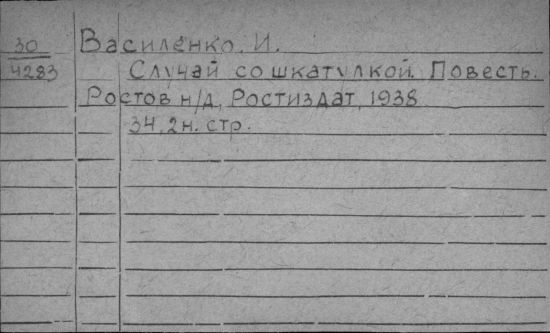 30 Василенко. И.
4283 Случай со шкатулкой. Повесть.
Ростов н/д, Ростиздат, 1938
34, 2н. стр.